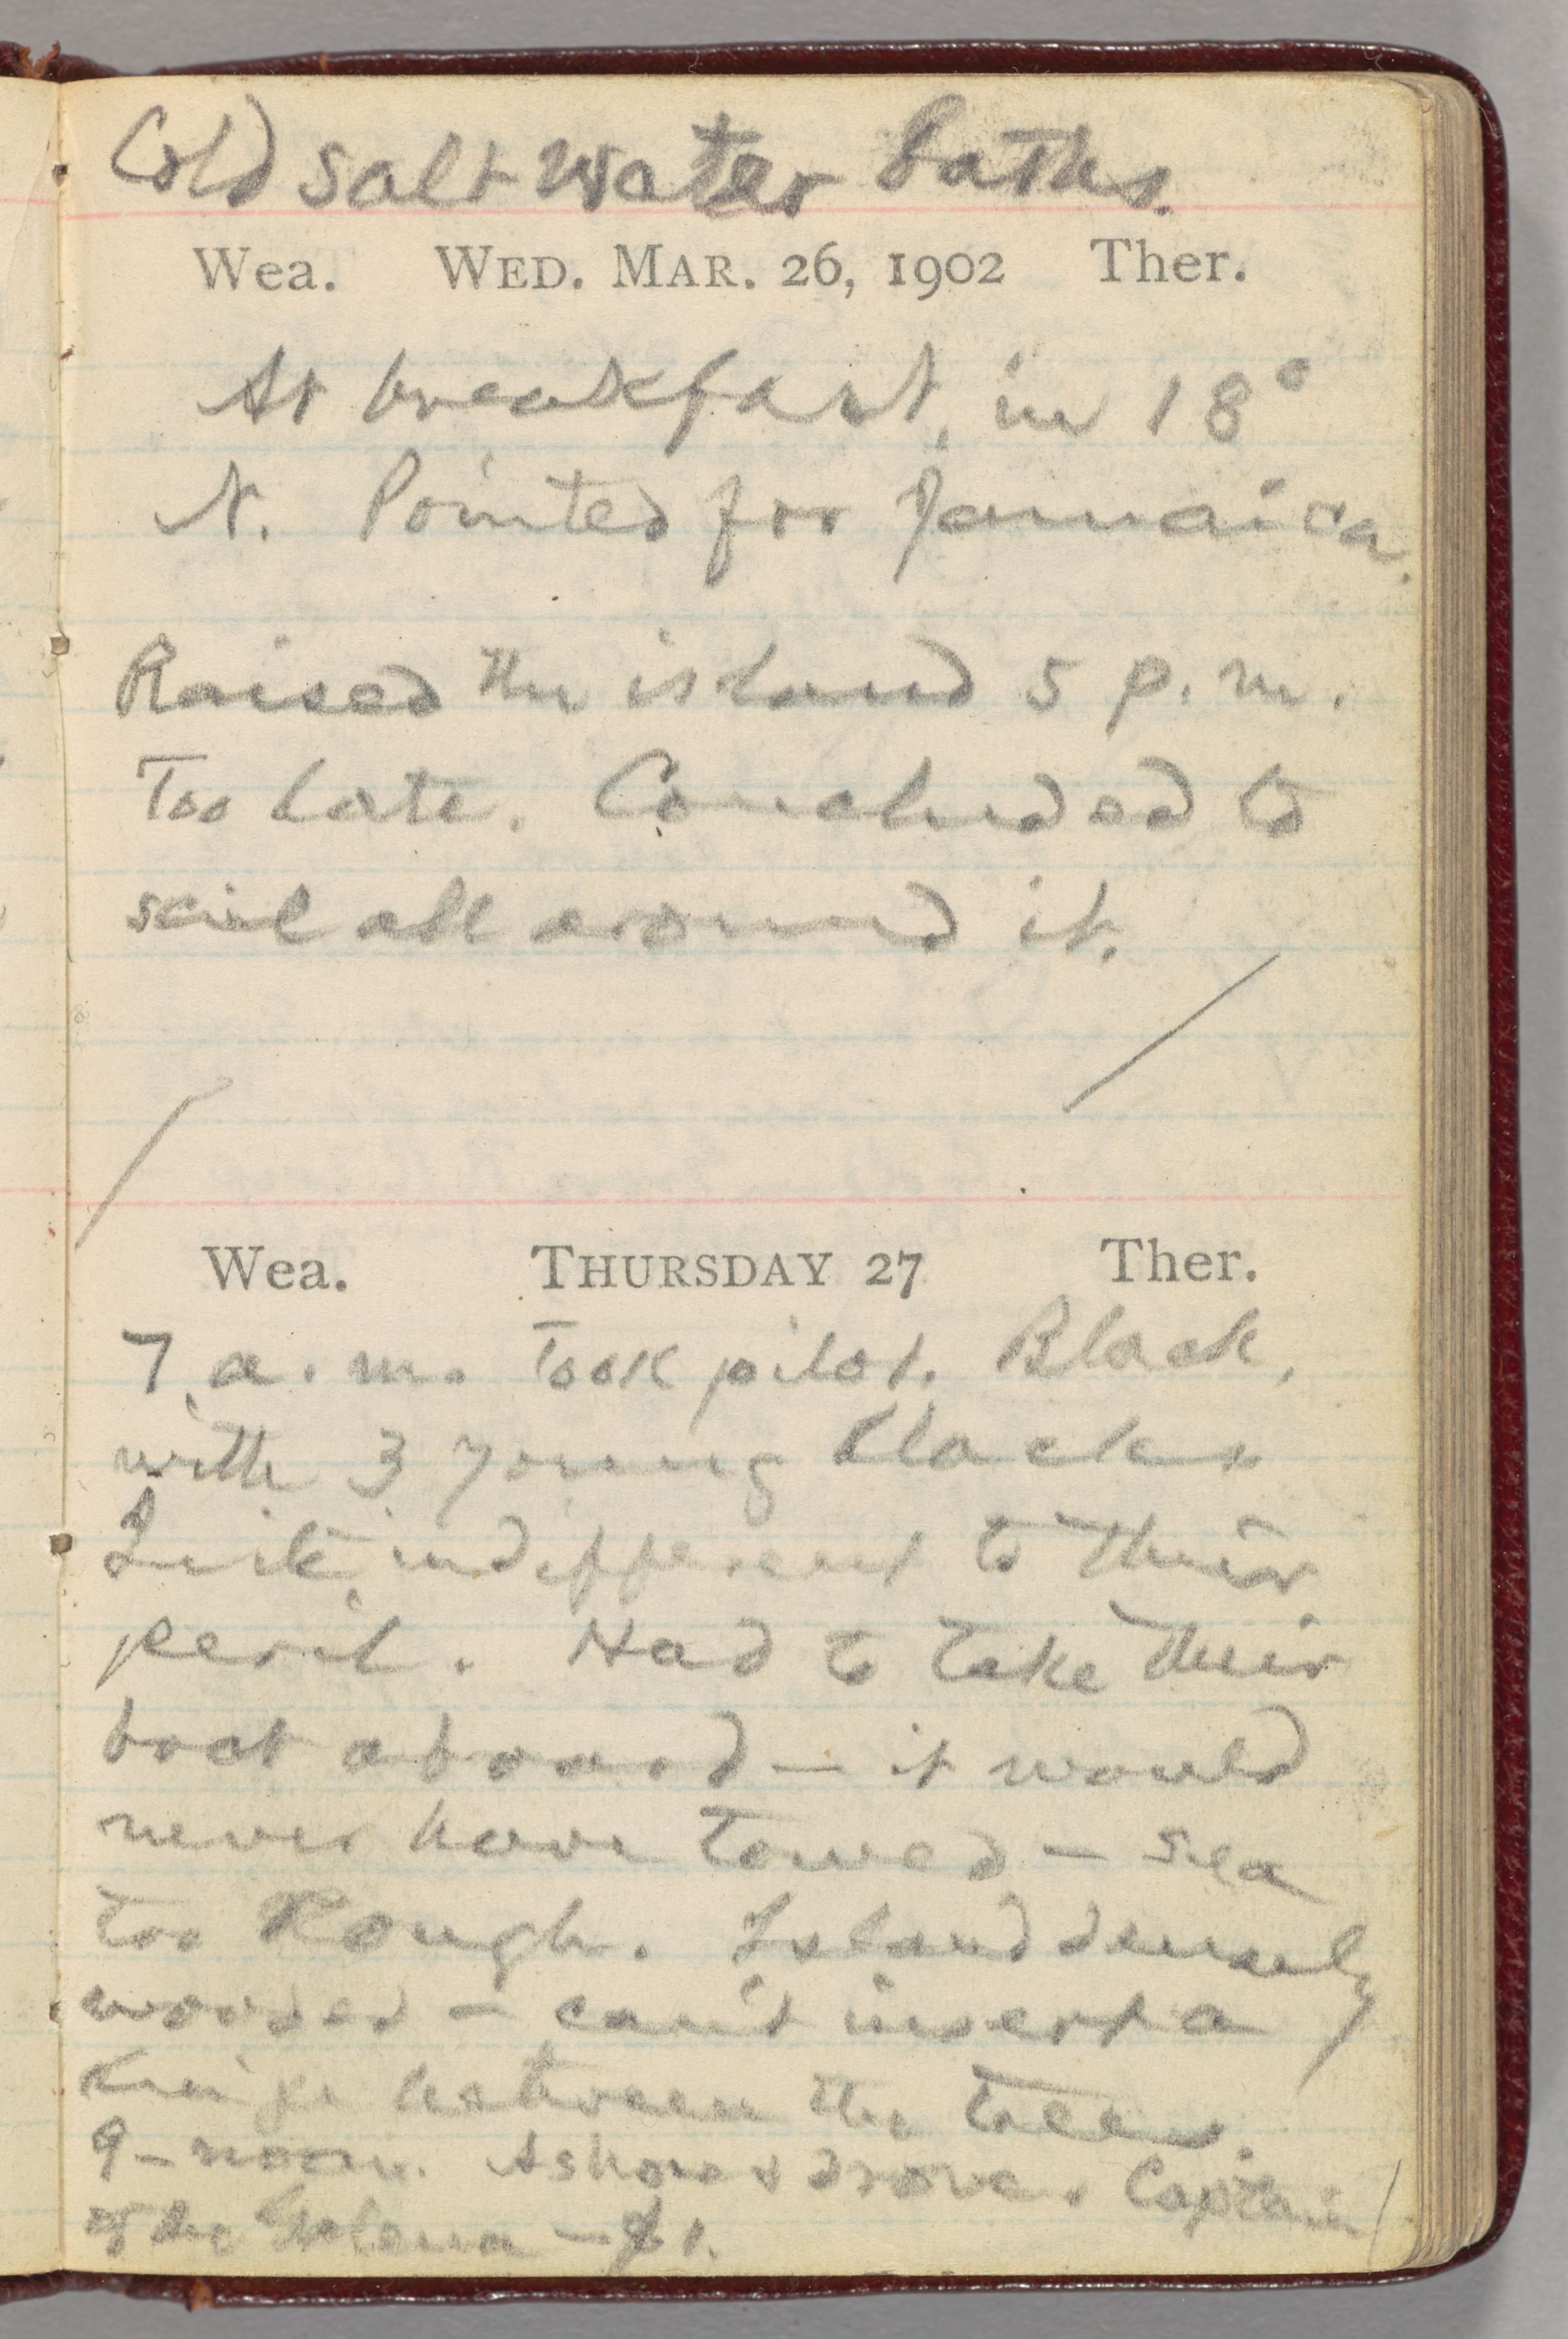 Cold salt water baths.
Wea. WED. MAR. 26, 1902 Ther.
At breakfast, in 18°
N. Pointed for Jamaica.
Raised the island 5 p.m.
Too late. Concluded to
sail all around it.
Wea. THURSDAY 27 Ther.
7 a.m. Took pilot. Black,
with 3 young blacks
Quite indifferent to their
peril. Had to take their
boat aboard — it would
never have towed — sea
too rough. Island densely
wooded — can't insert a
knife between the trees.
9 – noon. Ashore & drove. Captain
of the Galena — $1.